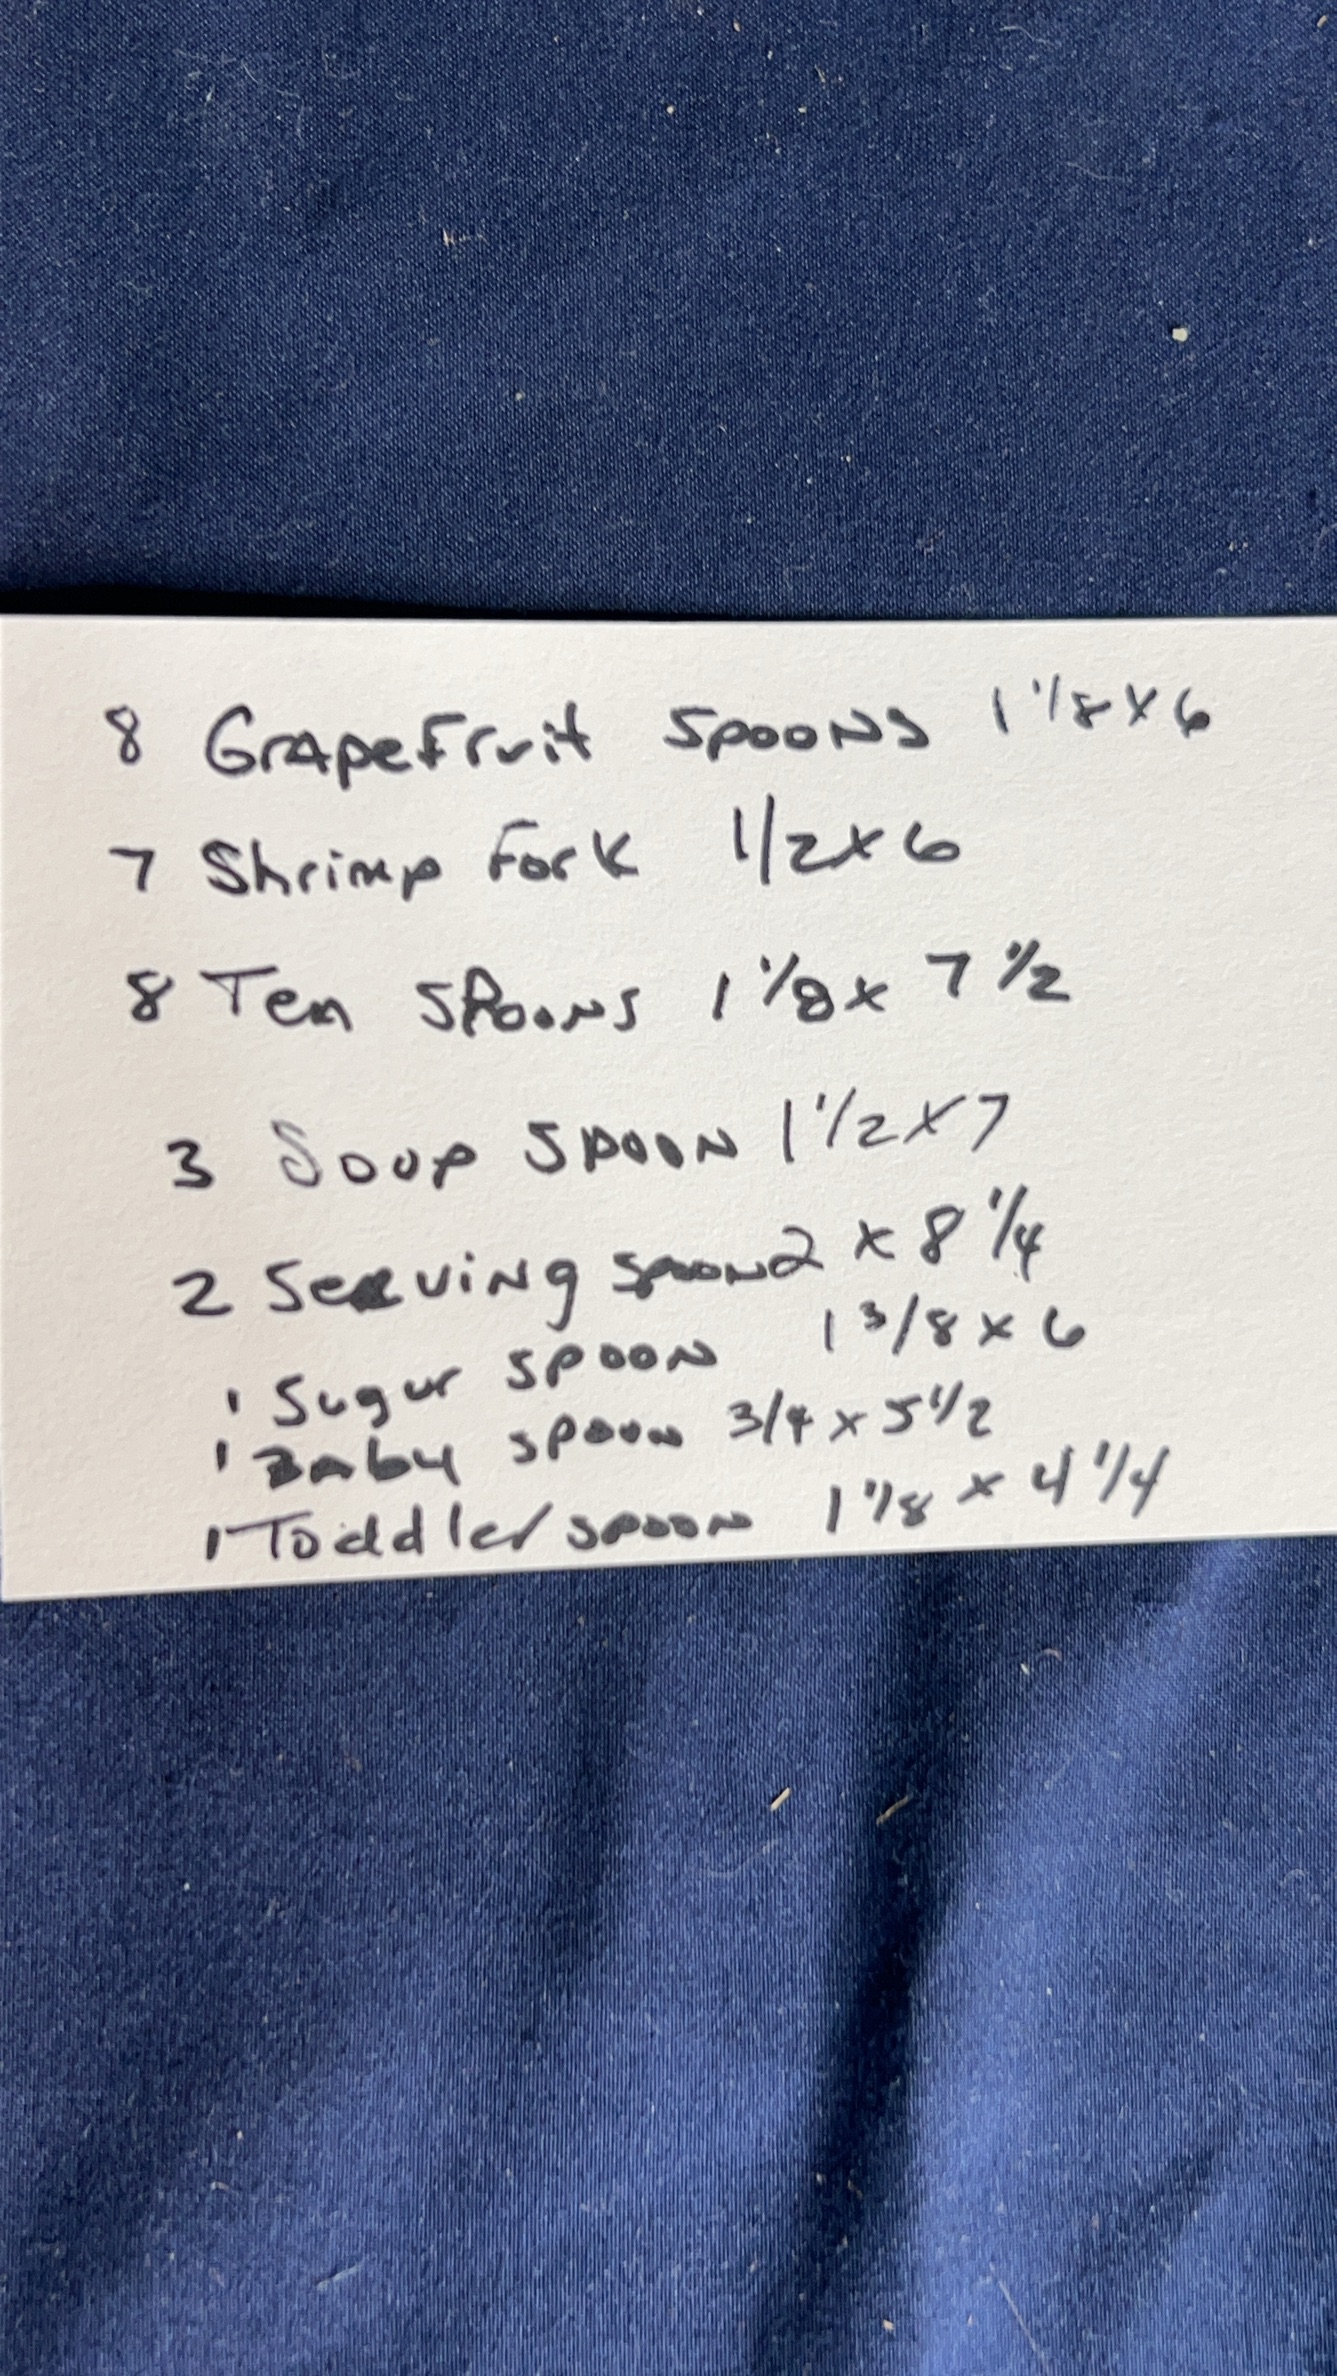 8 Grapefruit spoons 1 1/8 x 6
7 Shrimp Fork 1/2 x 6
8 Tea spoons 1 1/8 x 7 1/2
3 Soup spoon 1 1/2 x 7
2 Serving spoon 2 x 8 1/4
1 Sugar spoon 1 3/8 x 6
1 Baby spoon 3/4 x 5 1/2
1 Toddler spoon 1 1/8 x 4 1/4